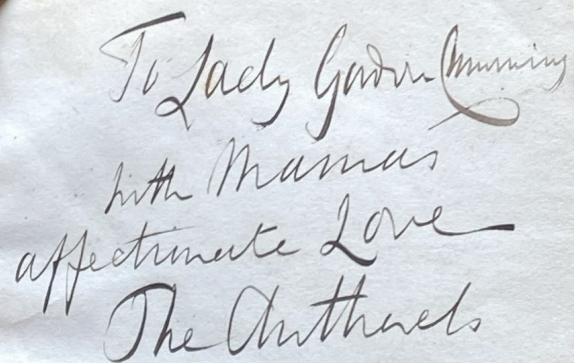 To Lady Gordon Cumming
with Mama's
affectionate Love
The Authoress